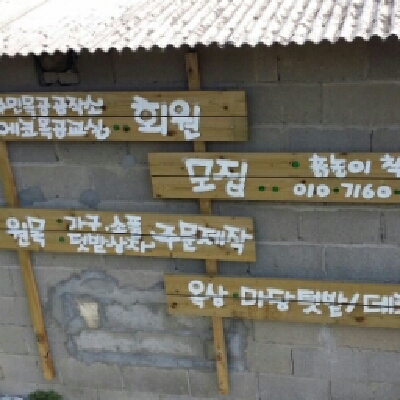 주민목공공작소
에코목공교실 회원
모집 흙놀이
010-7160-
원목 가구·소품
텃밭상자· 주문제작
옥상·마당텃밭/데